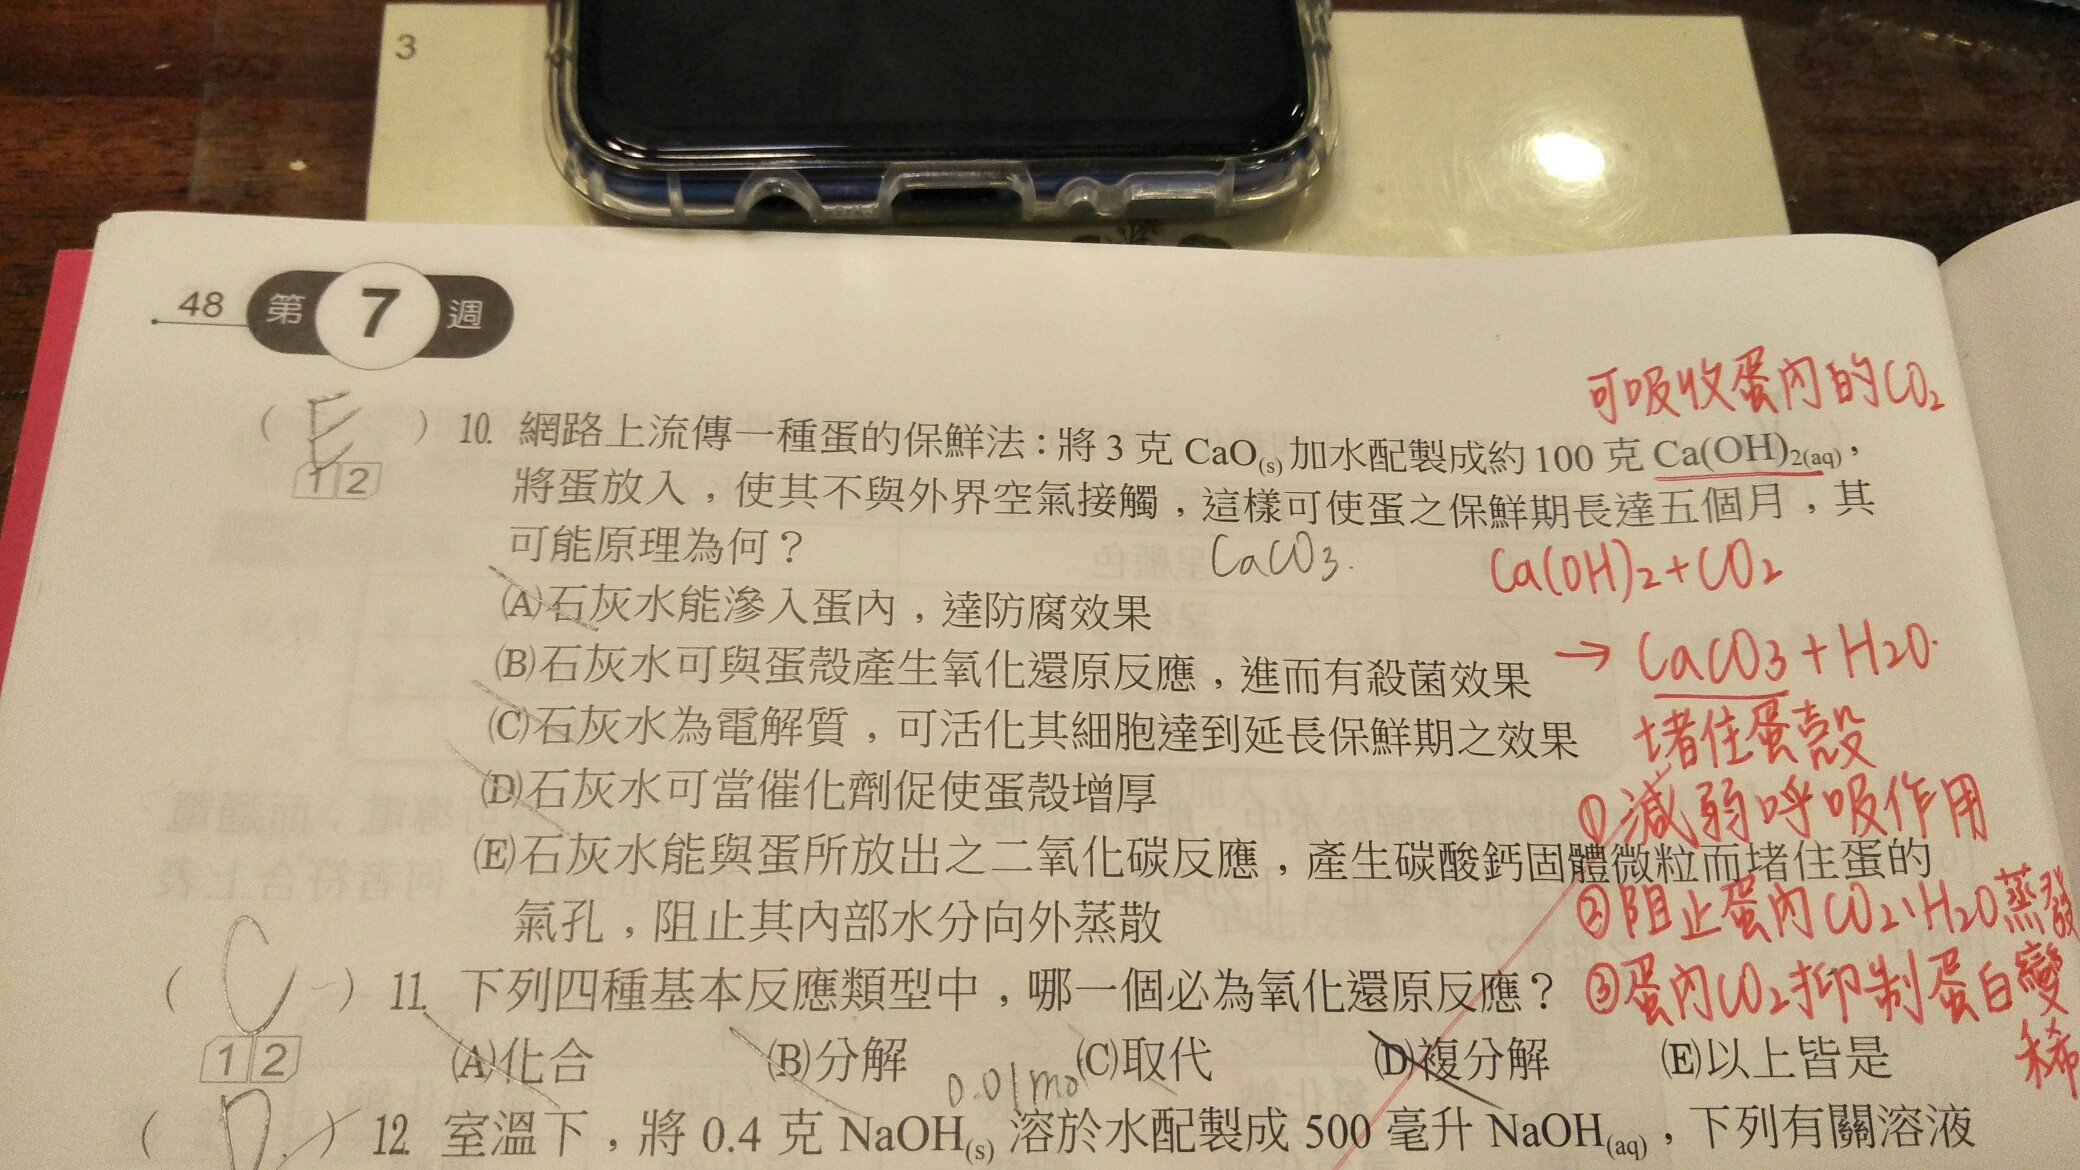 3
48 第 7 週
可吸收蛋內的CO2
( E ) 10. 網路上流傳一種蛋的保鮮法：將 3 克 CaO(s) 加水配製成約 100 克 Ca(OH)2(aq)，
12
將蛋放入，使其不與外界空氣接觸，這樣可使蛋之保鮮期長達五個月，其
可能原理為何？
CaCO3.
Ca(OH)2+CO2
(A)石灰水能滲入蛋內，達防腐效果
(B)石灰水可與蛋殼產生氧化還原反應，進而有殺菌效果
→ CaCO3+H2O.
(C)石灰水為電解質，可活化其細胞達到延長保鮮期之效果
堵住蛋殼
(D)石灰水可當催化劑促使蛋殼增厚
①減弱呼吸作用
(E)石灰水能與蛋所放出之二氧化碳反應，產生碳酸鈣固體微粒而堵住蛋的
氣孔，阻止其內部水分向外蒸散
②阻止蛋內CO2、H2O蒸發
( C ) 11. 下列四種基本反應類型中，哪一個必為氧化還原反應？
③蛋內CO2抑制蛋白變
稀
12
(A)化合 (B)分解 (C)取代 (D)複分解 (E)以上皆是
0.01mol
( D ) 12. 室溫下，將 0.4 克 NaOH(s) 溶於水配製成 500 毫升 NaOH(aq)，下列有關溶液